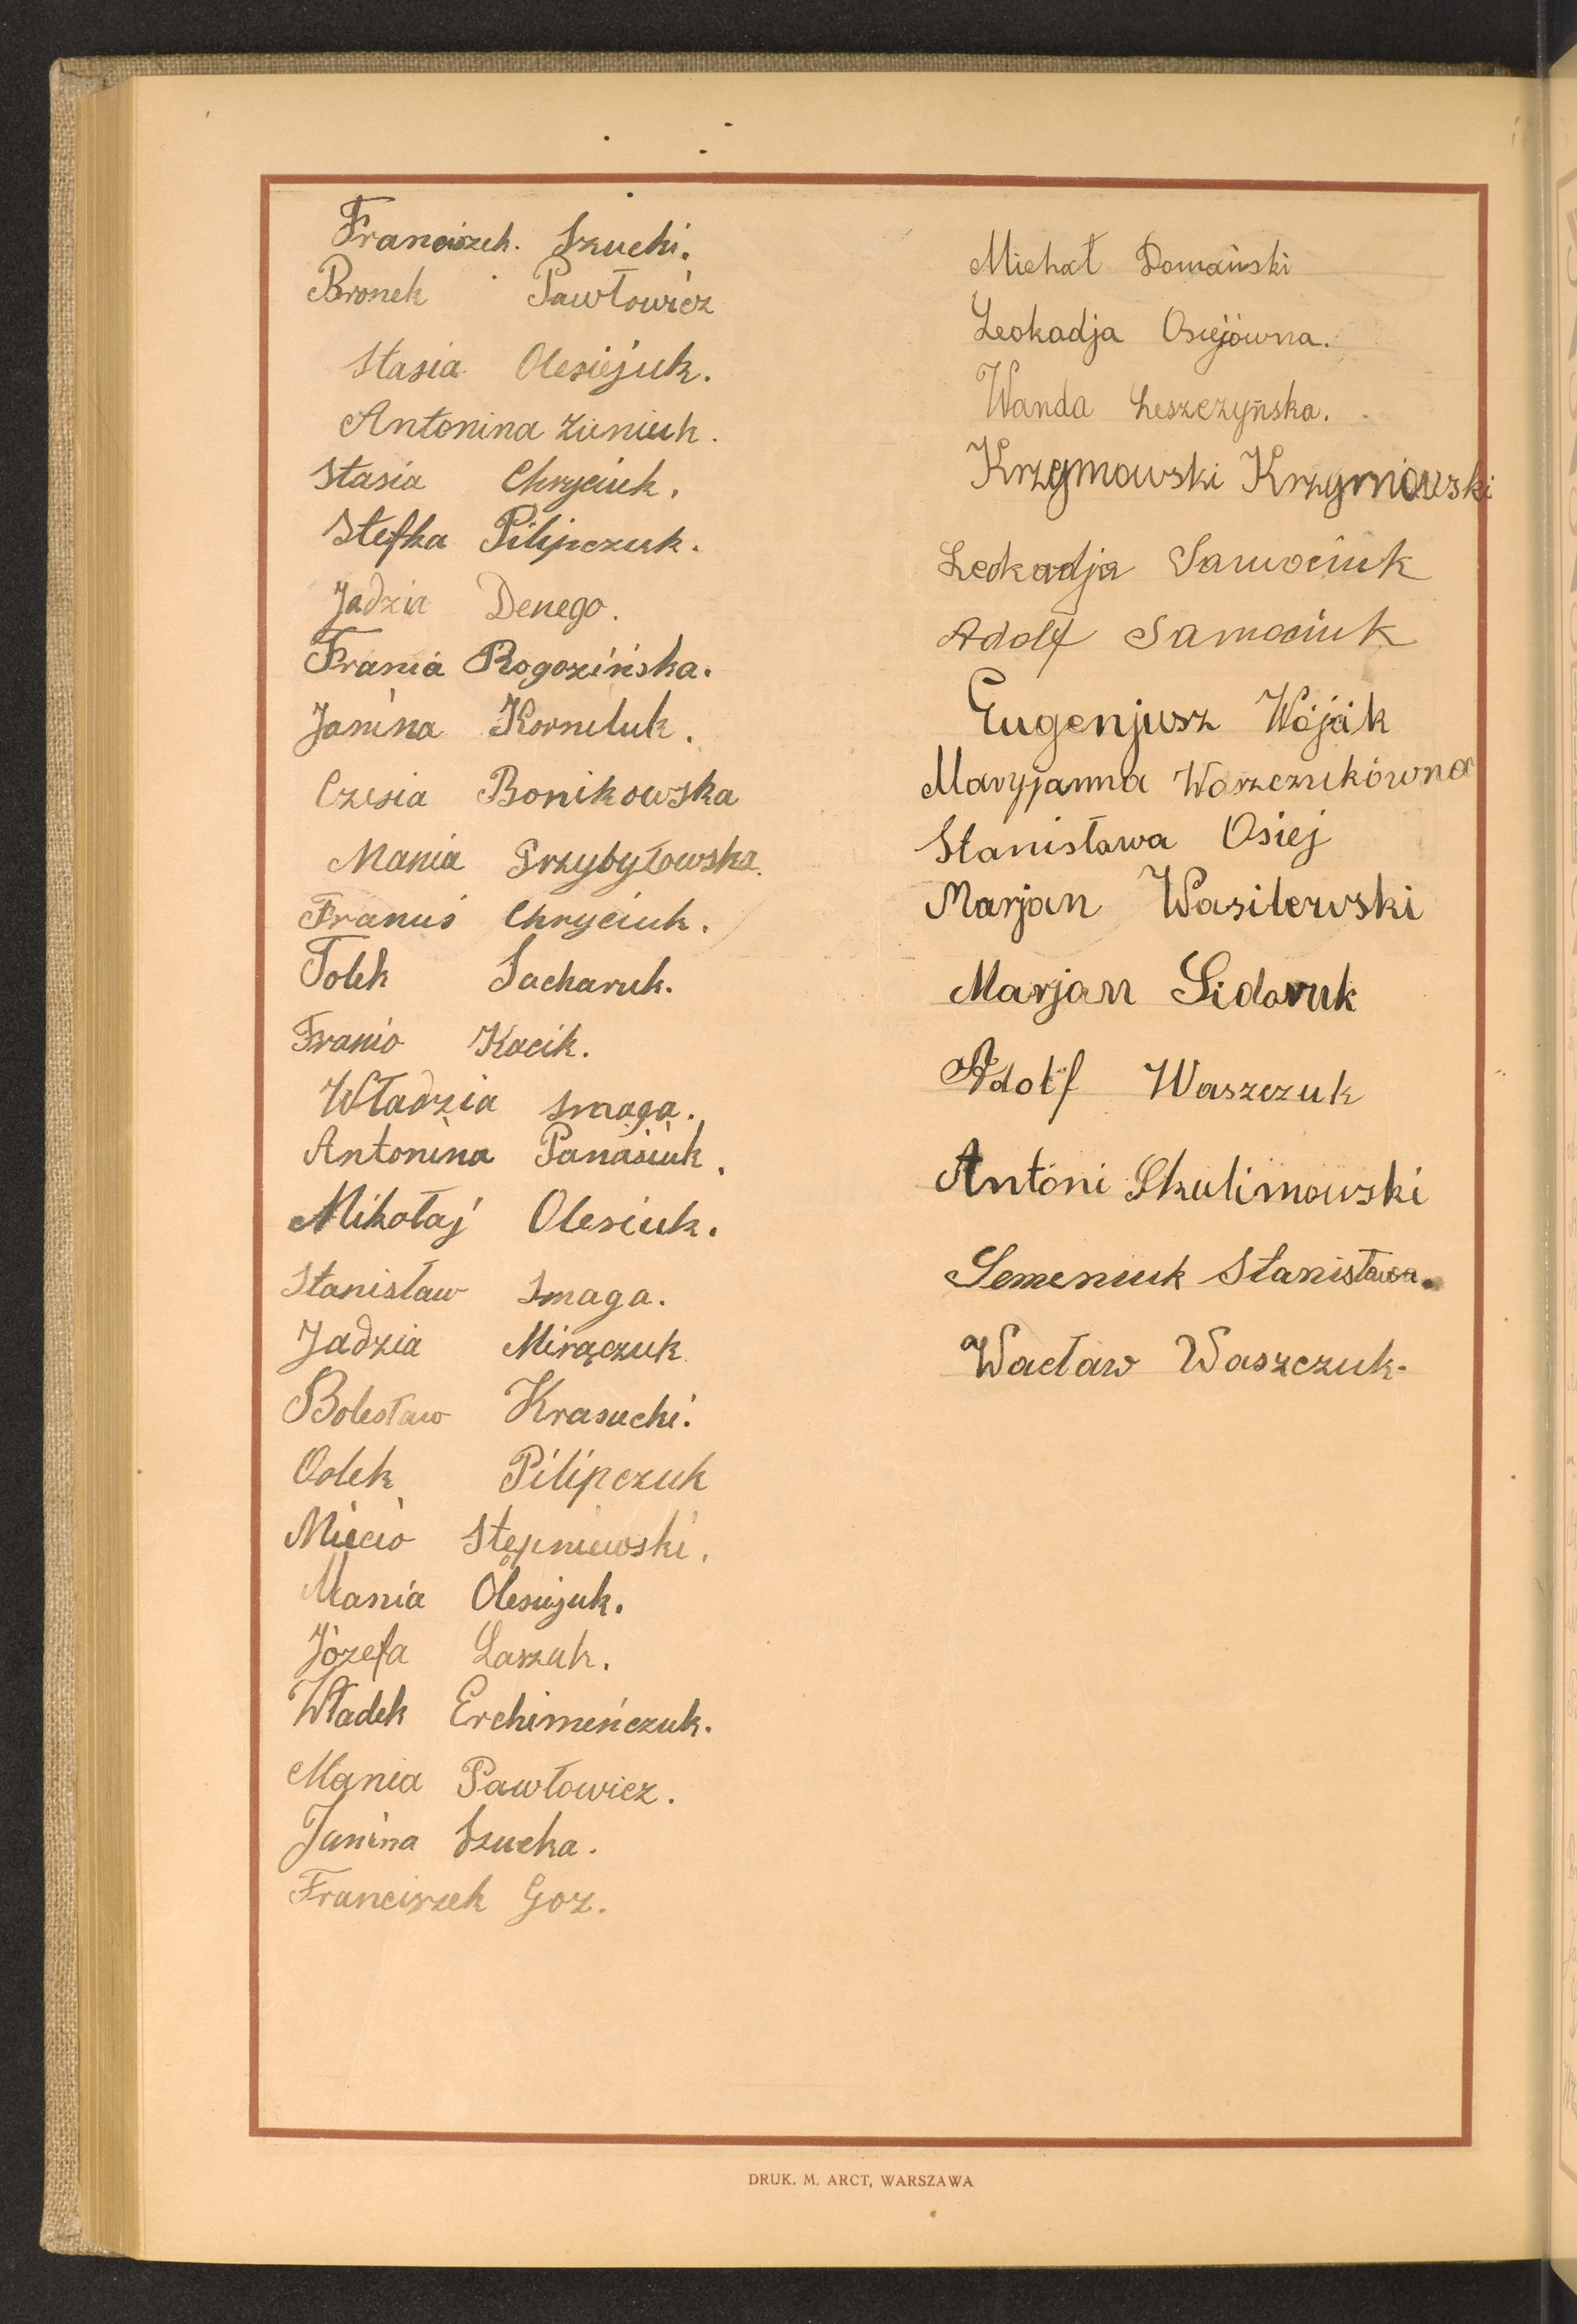 Franciszek. Szucki.
Bronek Pawłowicz
Stasia Olesiejuk.
Antonina Zieniuk.
Stasia Chryciuk.
Stefka Pilipczuk.
Jadzia Denego.
Frania Rogozińska.
Janina Korniluk.
Czesia Bonikowska
Mania Przybyłowska.
Franuś Chryciuk.
Tolek Sacharuk.
Franio Kacik.
Władzia Smaga.
Antonina Panasiuk.
Mikołaj Olesiuk.
Stanisław Smaga.
Jadzia Mirączuk
Bolesław Krasucki.
Olek Pilipczuk
Miecio Stępniewski.
Mania Olesiejuk.
Józefa Laszuk.
Władek Erchimeńczuk.
Mania Pawłowicz.
Janina Szucka.
Franciszek Goz.
Michał Domański
Leokadja Osiejówna.
Wanda Leszczyńska.
Krzymowski Krzymowski
Leokadja Samociuk
Adolf Samociuk
Eugenjusz Wójcik
Maryjanna Warzczukówna
Stanisława Osiej
Marjan Wasilewski
Marjan Sidoruk
Adolf Waszczuk
Antoni Skulimowski
Semeniuk Stanisława.
Wacław Waszczuk.
DRUK. M. ARCT, WARSZAWA